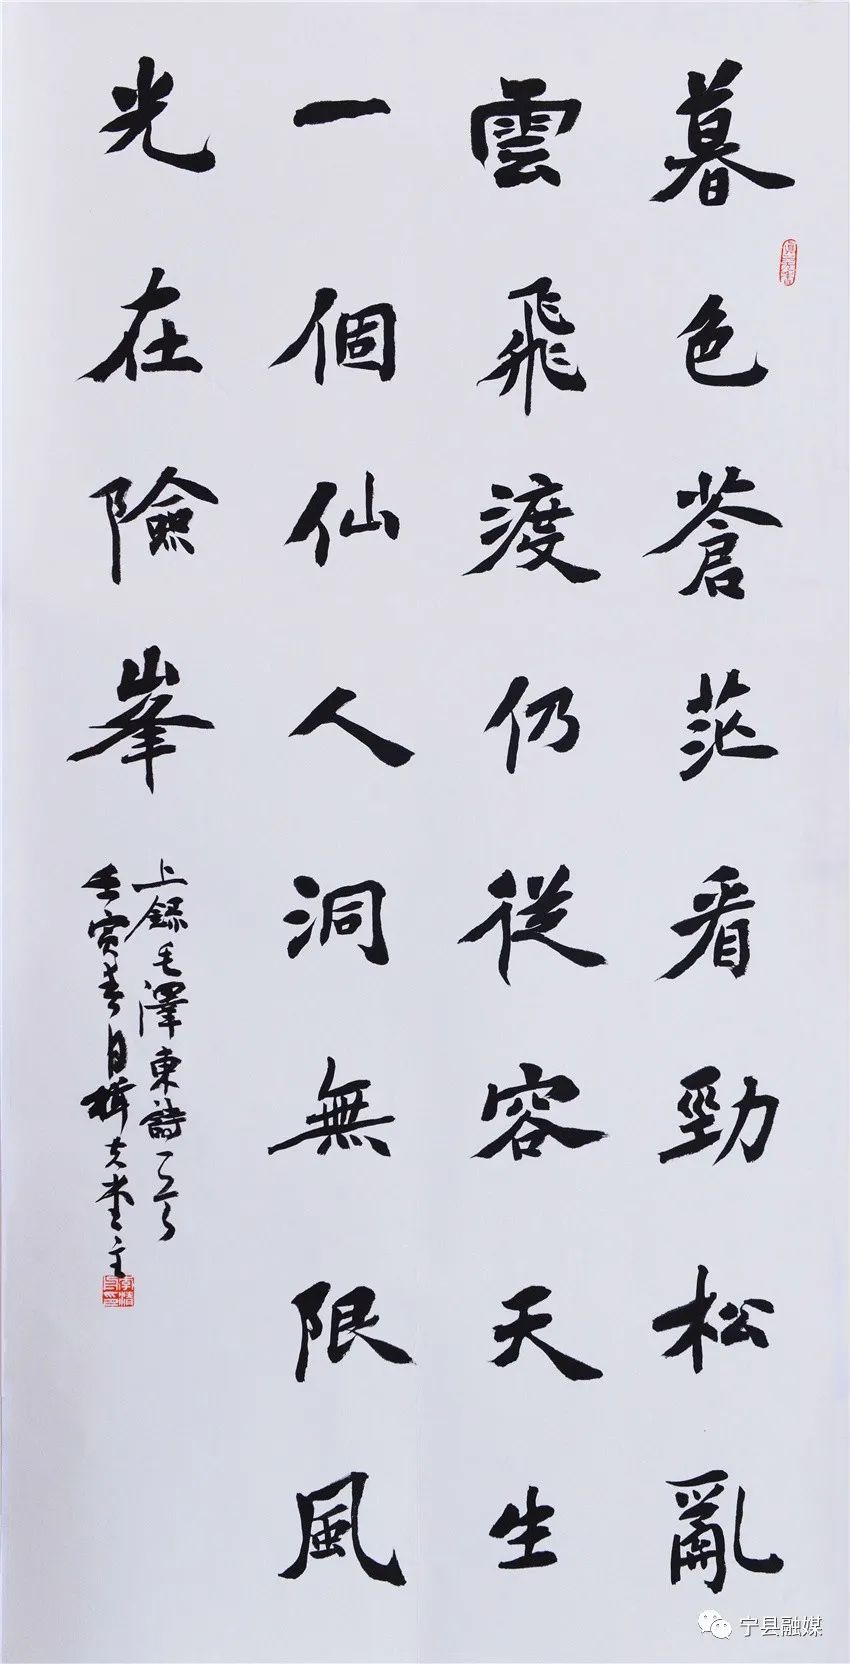 暮色蒼茫看勁松亂
雲飛渡仍從容天生
一個仙人洞無限風
光在險峯
上錄毛澤東詩一首
壬寅春月
堂主
宁县融媒